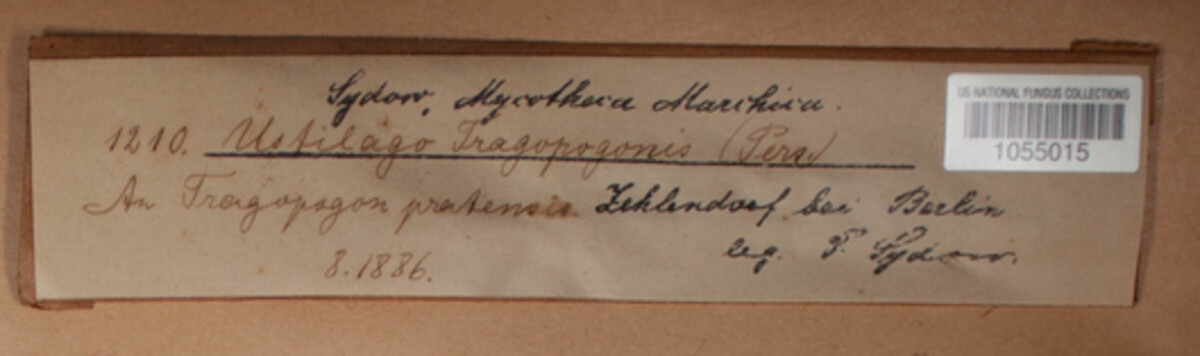 Sydow, Mycotheca Marchica.
1210. Ustilago Tragopogonis (Pers.)
An Tragopogon pratensis Zehlendorf bei Berlin
leg. P. Sydow.
8.1886.
US NATIONAL FUNGUS COLLECTIONS
1055015